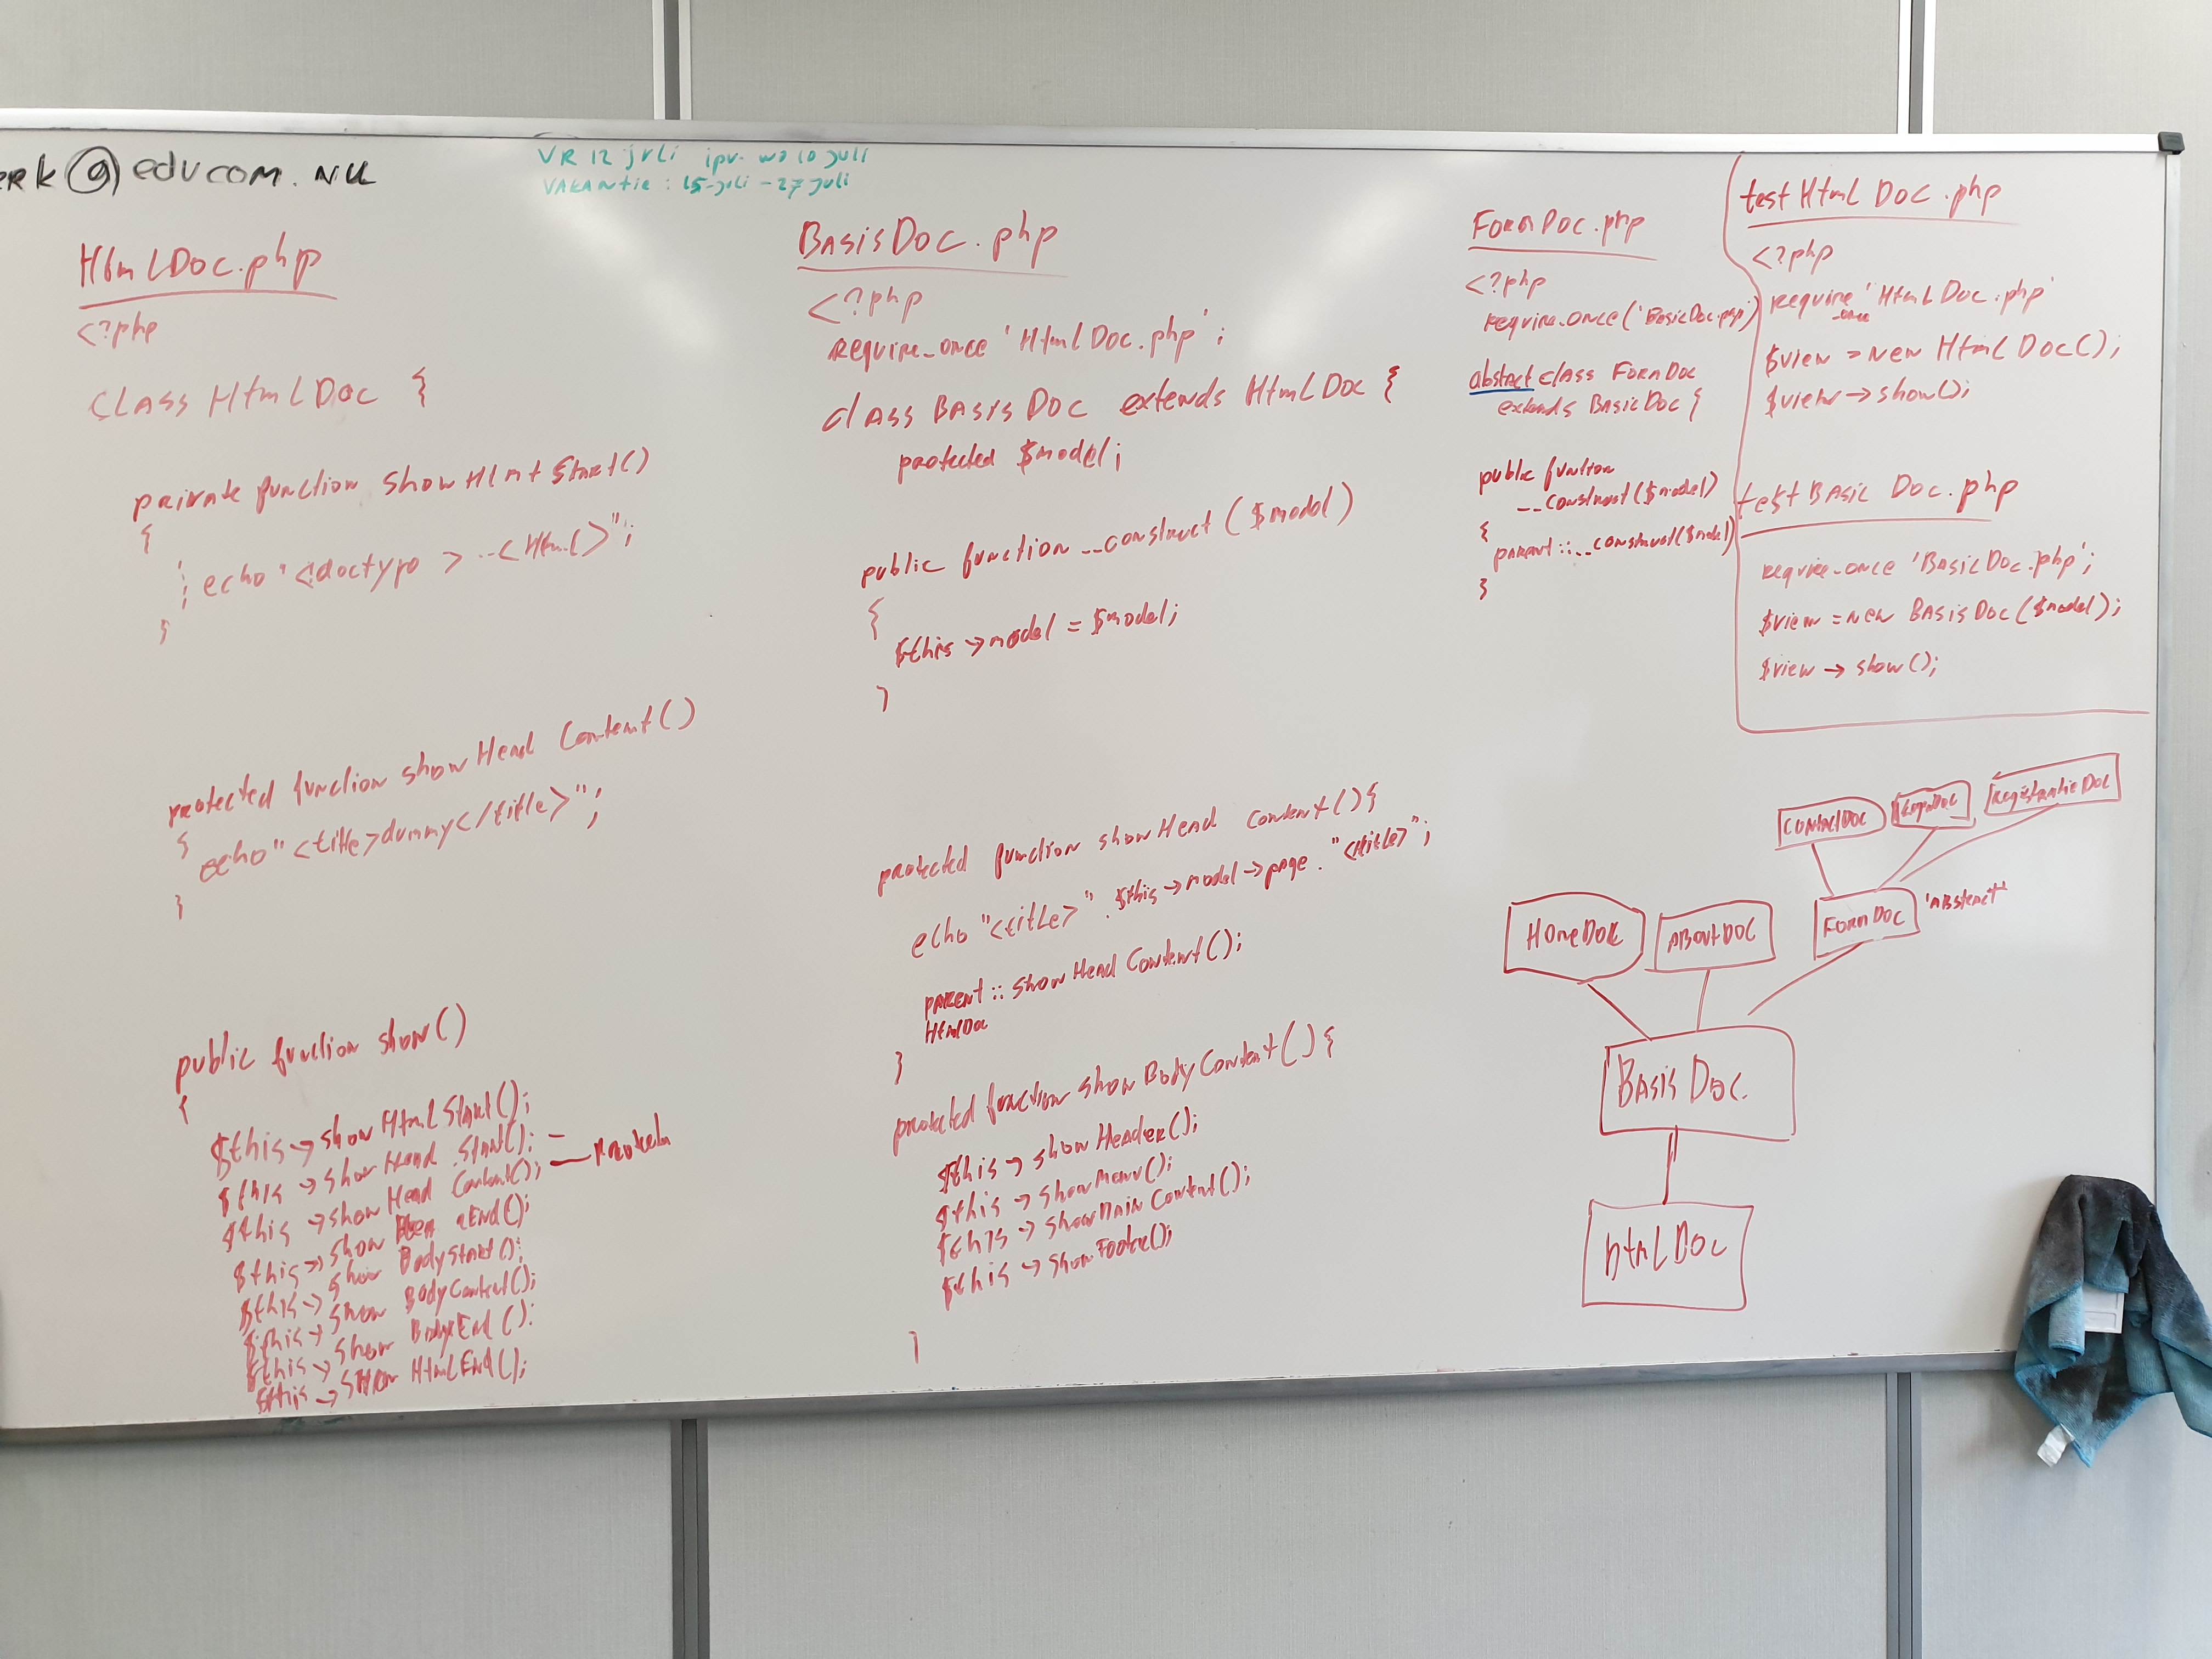 @educom.nu
VR 12 juli ipv. wo 10 juli
VAKANTIE : 15-juli - 27 juli
HtmlDoc.php
<?php
CLASS HtmlDoc {
private function showHlmtStart()
{
echo "<!doctype > ..<Html>";
}
protected function showHead Content()
{
echo "<title>dummy</title>";
}
public function show()
{
$this->showHtmlStart();
$this->showHead Start();
$this->showHead Content();
$this->show End();
$this->show BodyStart();
$this->show BodyContent();
$this->show BodyEnd();
$this->show HtmlEnd();
BASisDoc.php
<?php
require_once 'HtmlDoc.php';
class BASisDoc extends HtmlDoc {
protected $model;
public function __construct ($model)
{
$this->model = $model;
}
protected function showHead Content(){
echo "<title>" . $this->model->page . "<title>";
parent :: showHead Content();
HtmlDoc
}
protected function showBodyContent(){
$this->showHeader();
$this->showMenu();
$this->showMain Content();
$this->showFooter();
}
FormDoc.php
<?php
require_once('BasicDoc.php')
abstract class FormDoc
extends BasicDoc {
public function
__construct($model)
{
parent::__construct($model)
}
testHtmlDoc.php
<?php
require 'HtmlDoc.php'
_once
$view = new HtmlDoc();
$view->show();
testBasic Doc.php
require_once 'BasicDoc.php';
$view = new BasisDoc($model);
$view->show();
ContactDoc
RegistratieDoc
HomeDoc
AboutDoc
FormDoc
'Abstract'
BasisDoc.
HtmlDoc